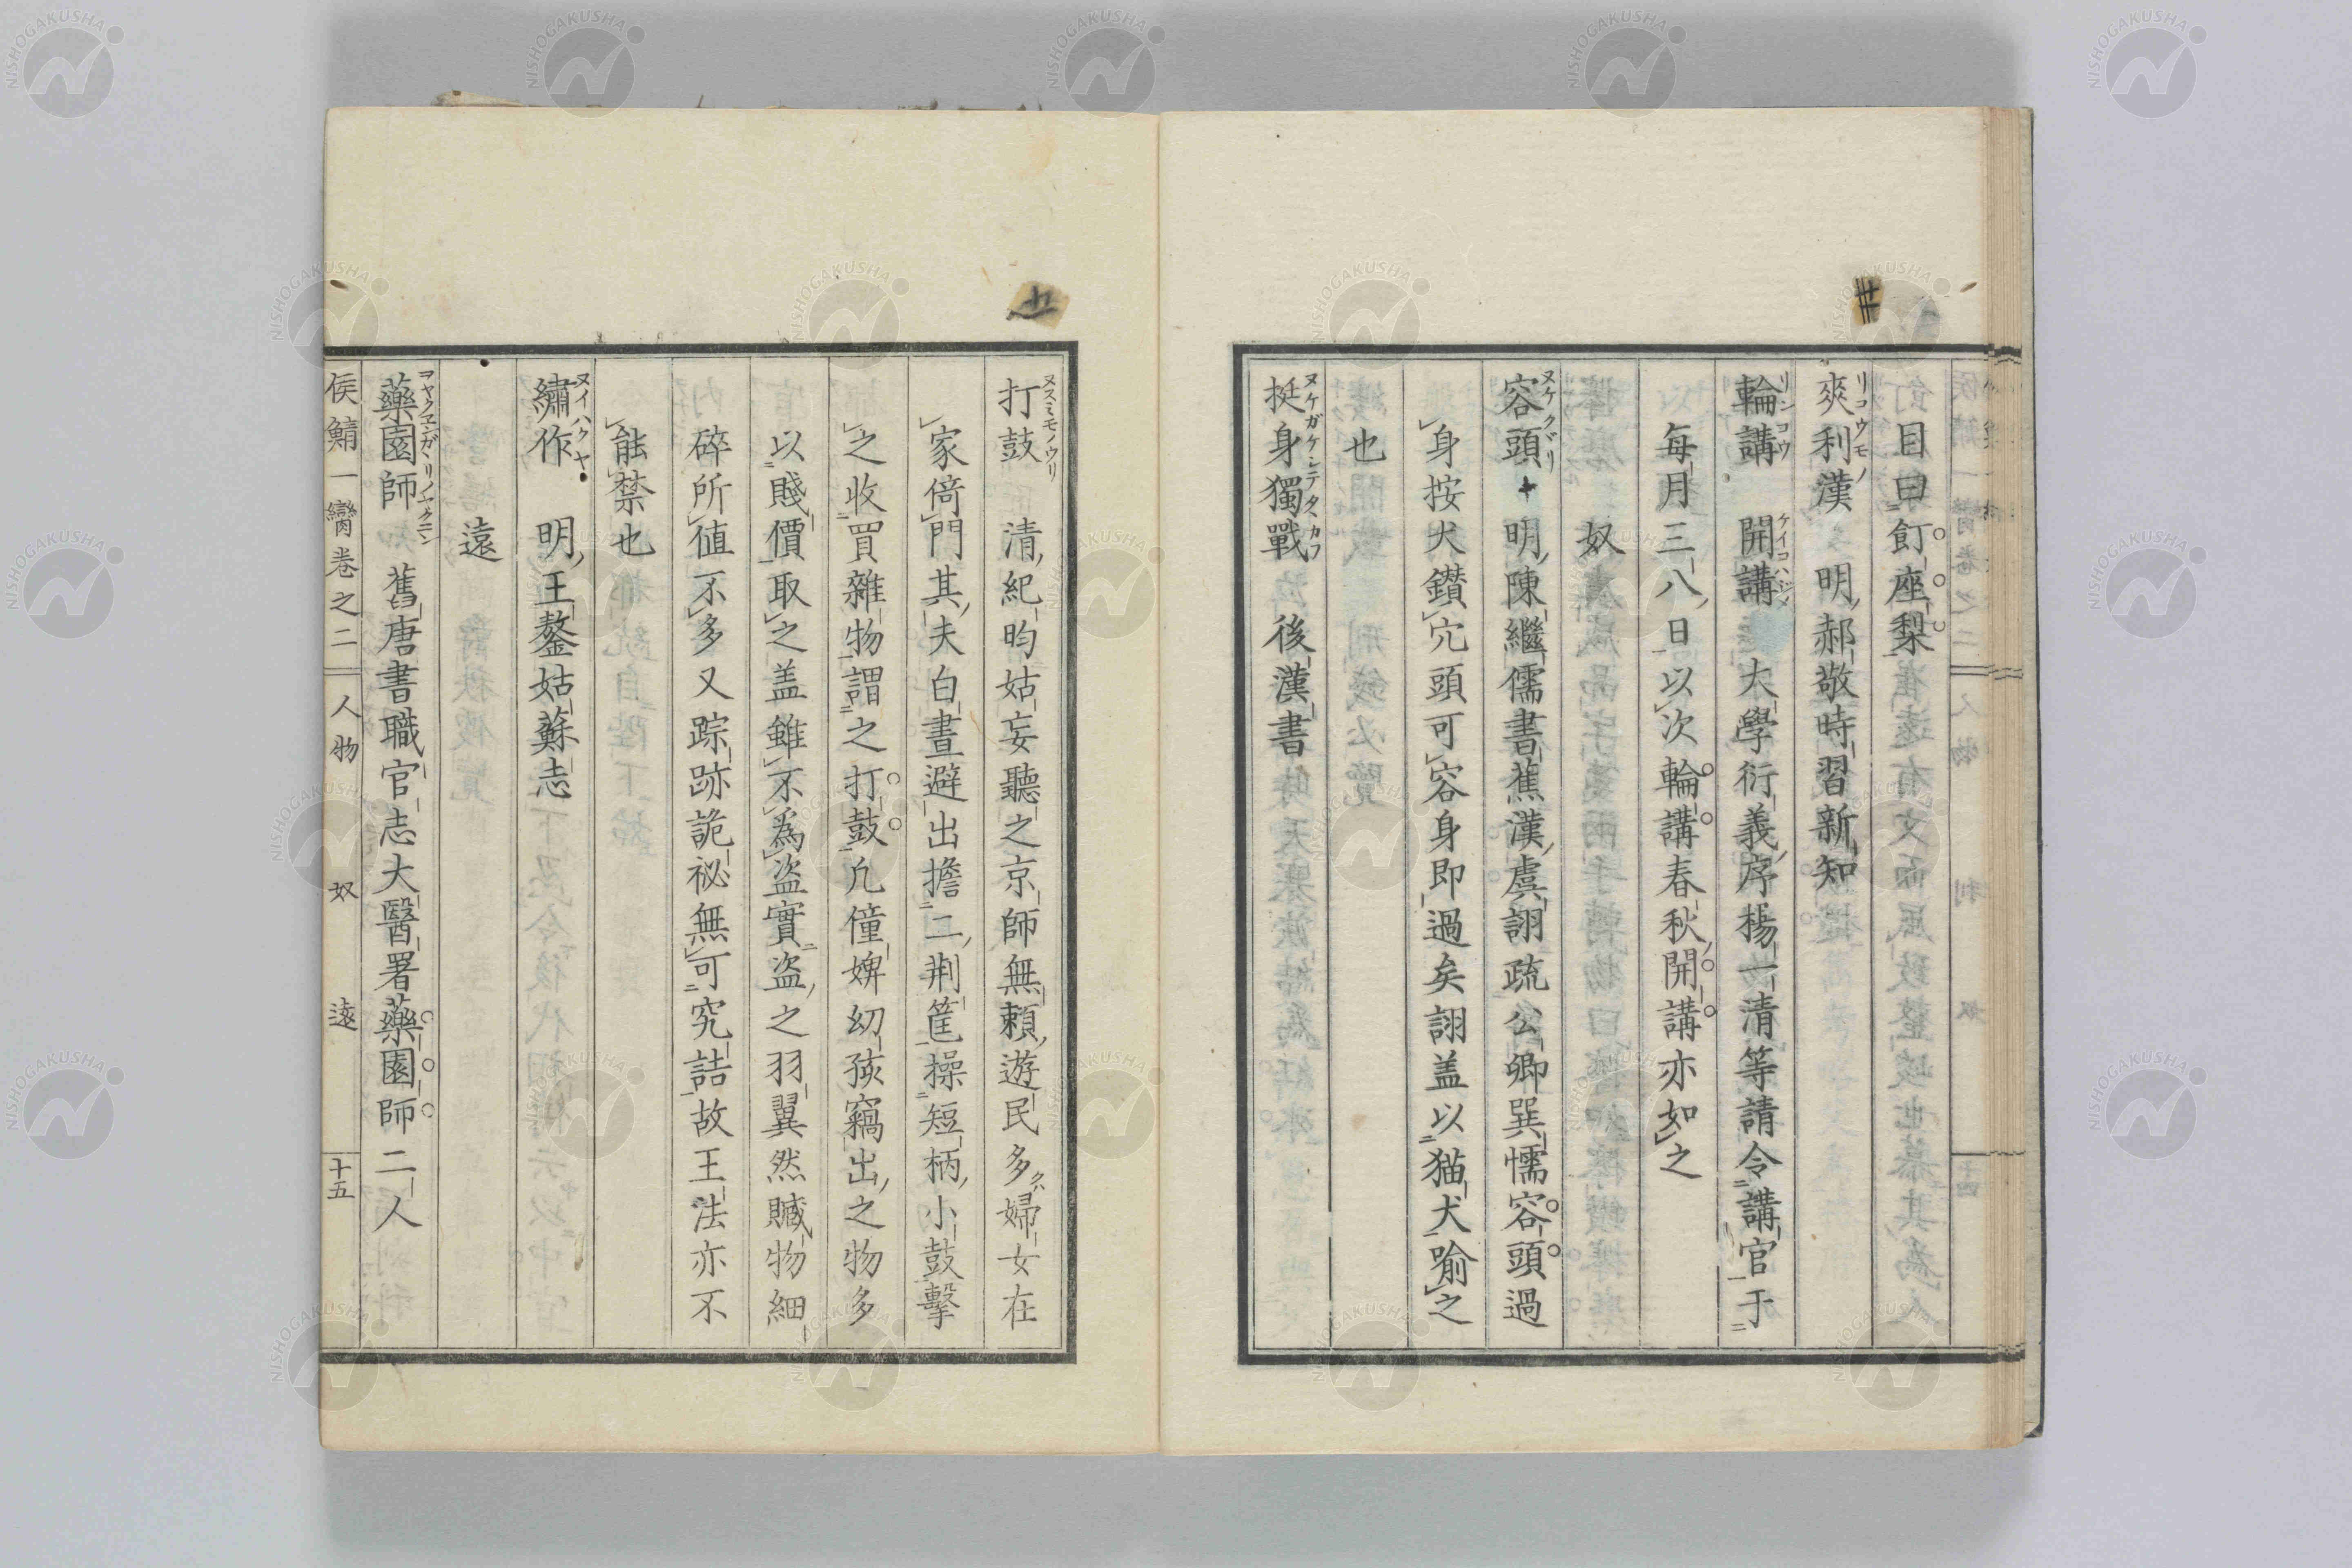 目曰飣座梨
爽利漢　明郝敬時習新知
リコウモノ
輪講　開講　大學衍義序楊一清等請令講官于
リンコウ　ケイコハジメ
每月三八日以次輪講春秋開講亦如之
奴
容頭　明陳繼儒書蕉漢虞詡疏公卿巽懦容頭過
ヌケクヾリ
身按犬鑚穴頭可容身即過矣詡盖以猫犬喻之
也
挺身獨戰　後漢書
ヌケガケシテタヽカフ
打鼓　清紀昀姑妄聽之京師無賴遊民多婦女在
ヌスミモノウリ
家倚門其夫白晝避出擔二荆筐操短柄小鼓擊
之收買雜物謂之打鼓凡僮婢幼孩竊出之物多
以賤價取之盖雖不為盗實盗之羽翼然贓物細
碎所值不多又踪跡詭祕無可究詰故王法亦不
能禁也
繡作　明王鏊姑蘇志
ヌイハクヤ
遠
藥園師　舊唐書職官志大醫署藥園師二人
侯鯖一臠卷之二　人物　奴　遠　十五
NISHOGAKUSHA